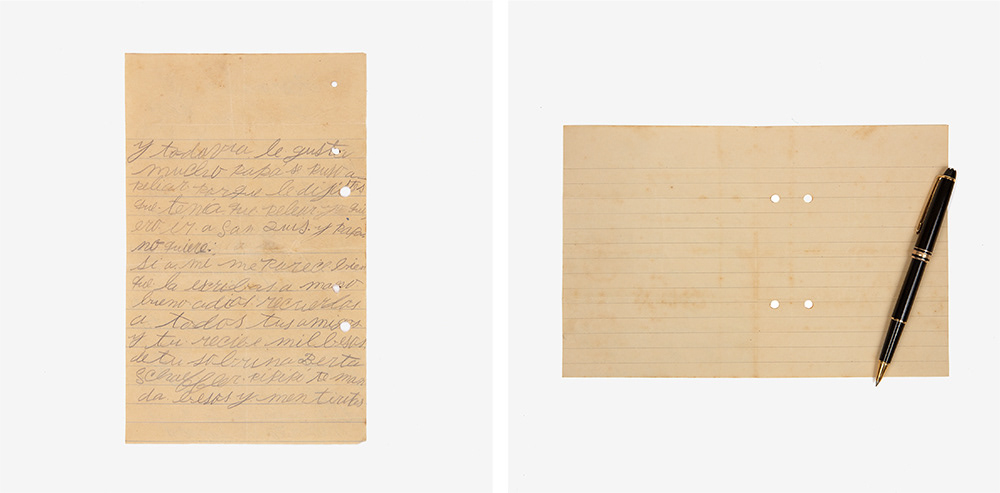 y todavia le gusta
mucho papa se puso a
pelear porque le dijistes
que tenia que pelear yo qui
ero ir a San Luis. y papa
no quiere.
si a mi me parece bien
que la escribas a mano
bueno adios recuerdos
a todos tus amigos
y tu recibe mil besos
de tu sobrina Berta
te man
da besos y mentiritas